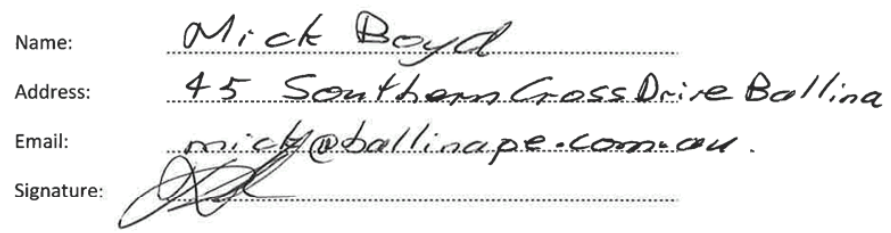 Name: Mick Boyd
Address: 45 Southern Cross Drive Ballina
Email: mick@ballinape.com.au.
Signature: